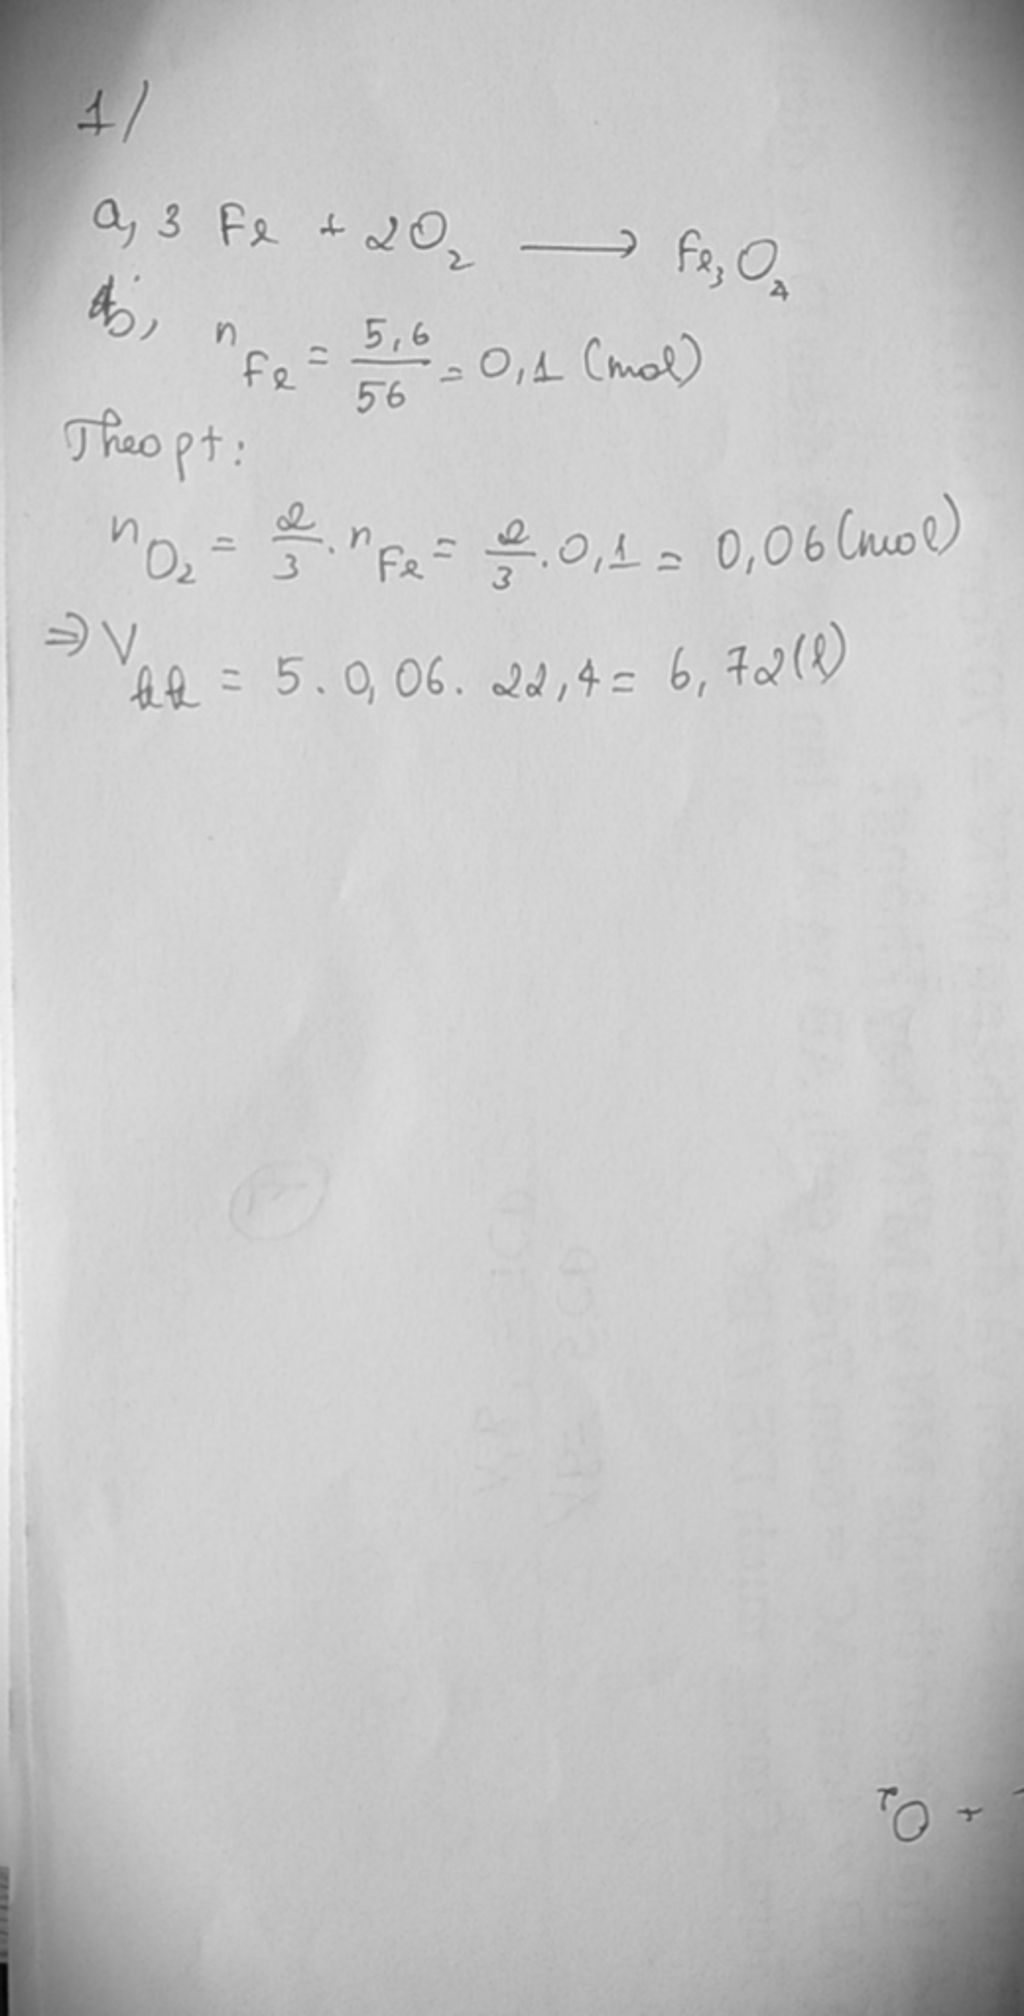 1/
a, 3 Fe + 2O₂ ⟶ Fe₃O₄
b, n Fe = 5,6/56 = 0,1 (mol)
Theo pt:
n O₂ = 2/3 . n Fe = 2/3 . 0,1 = 0,06 (mol)
⇒ V kk = 5 . 0,06 . 22,4 = 6,72 (l)